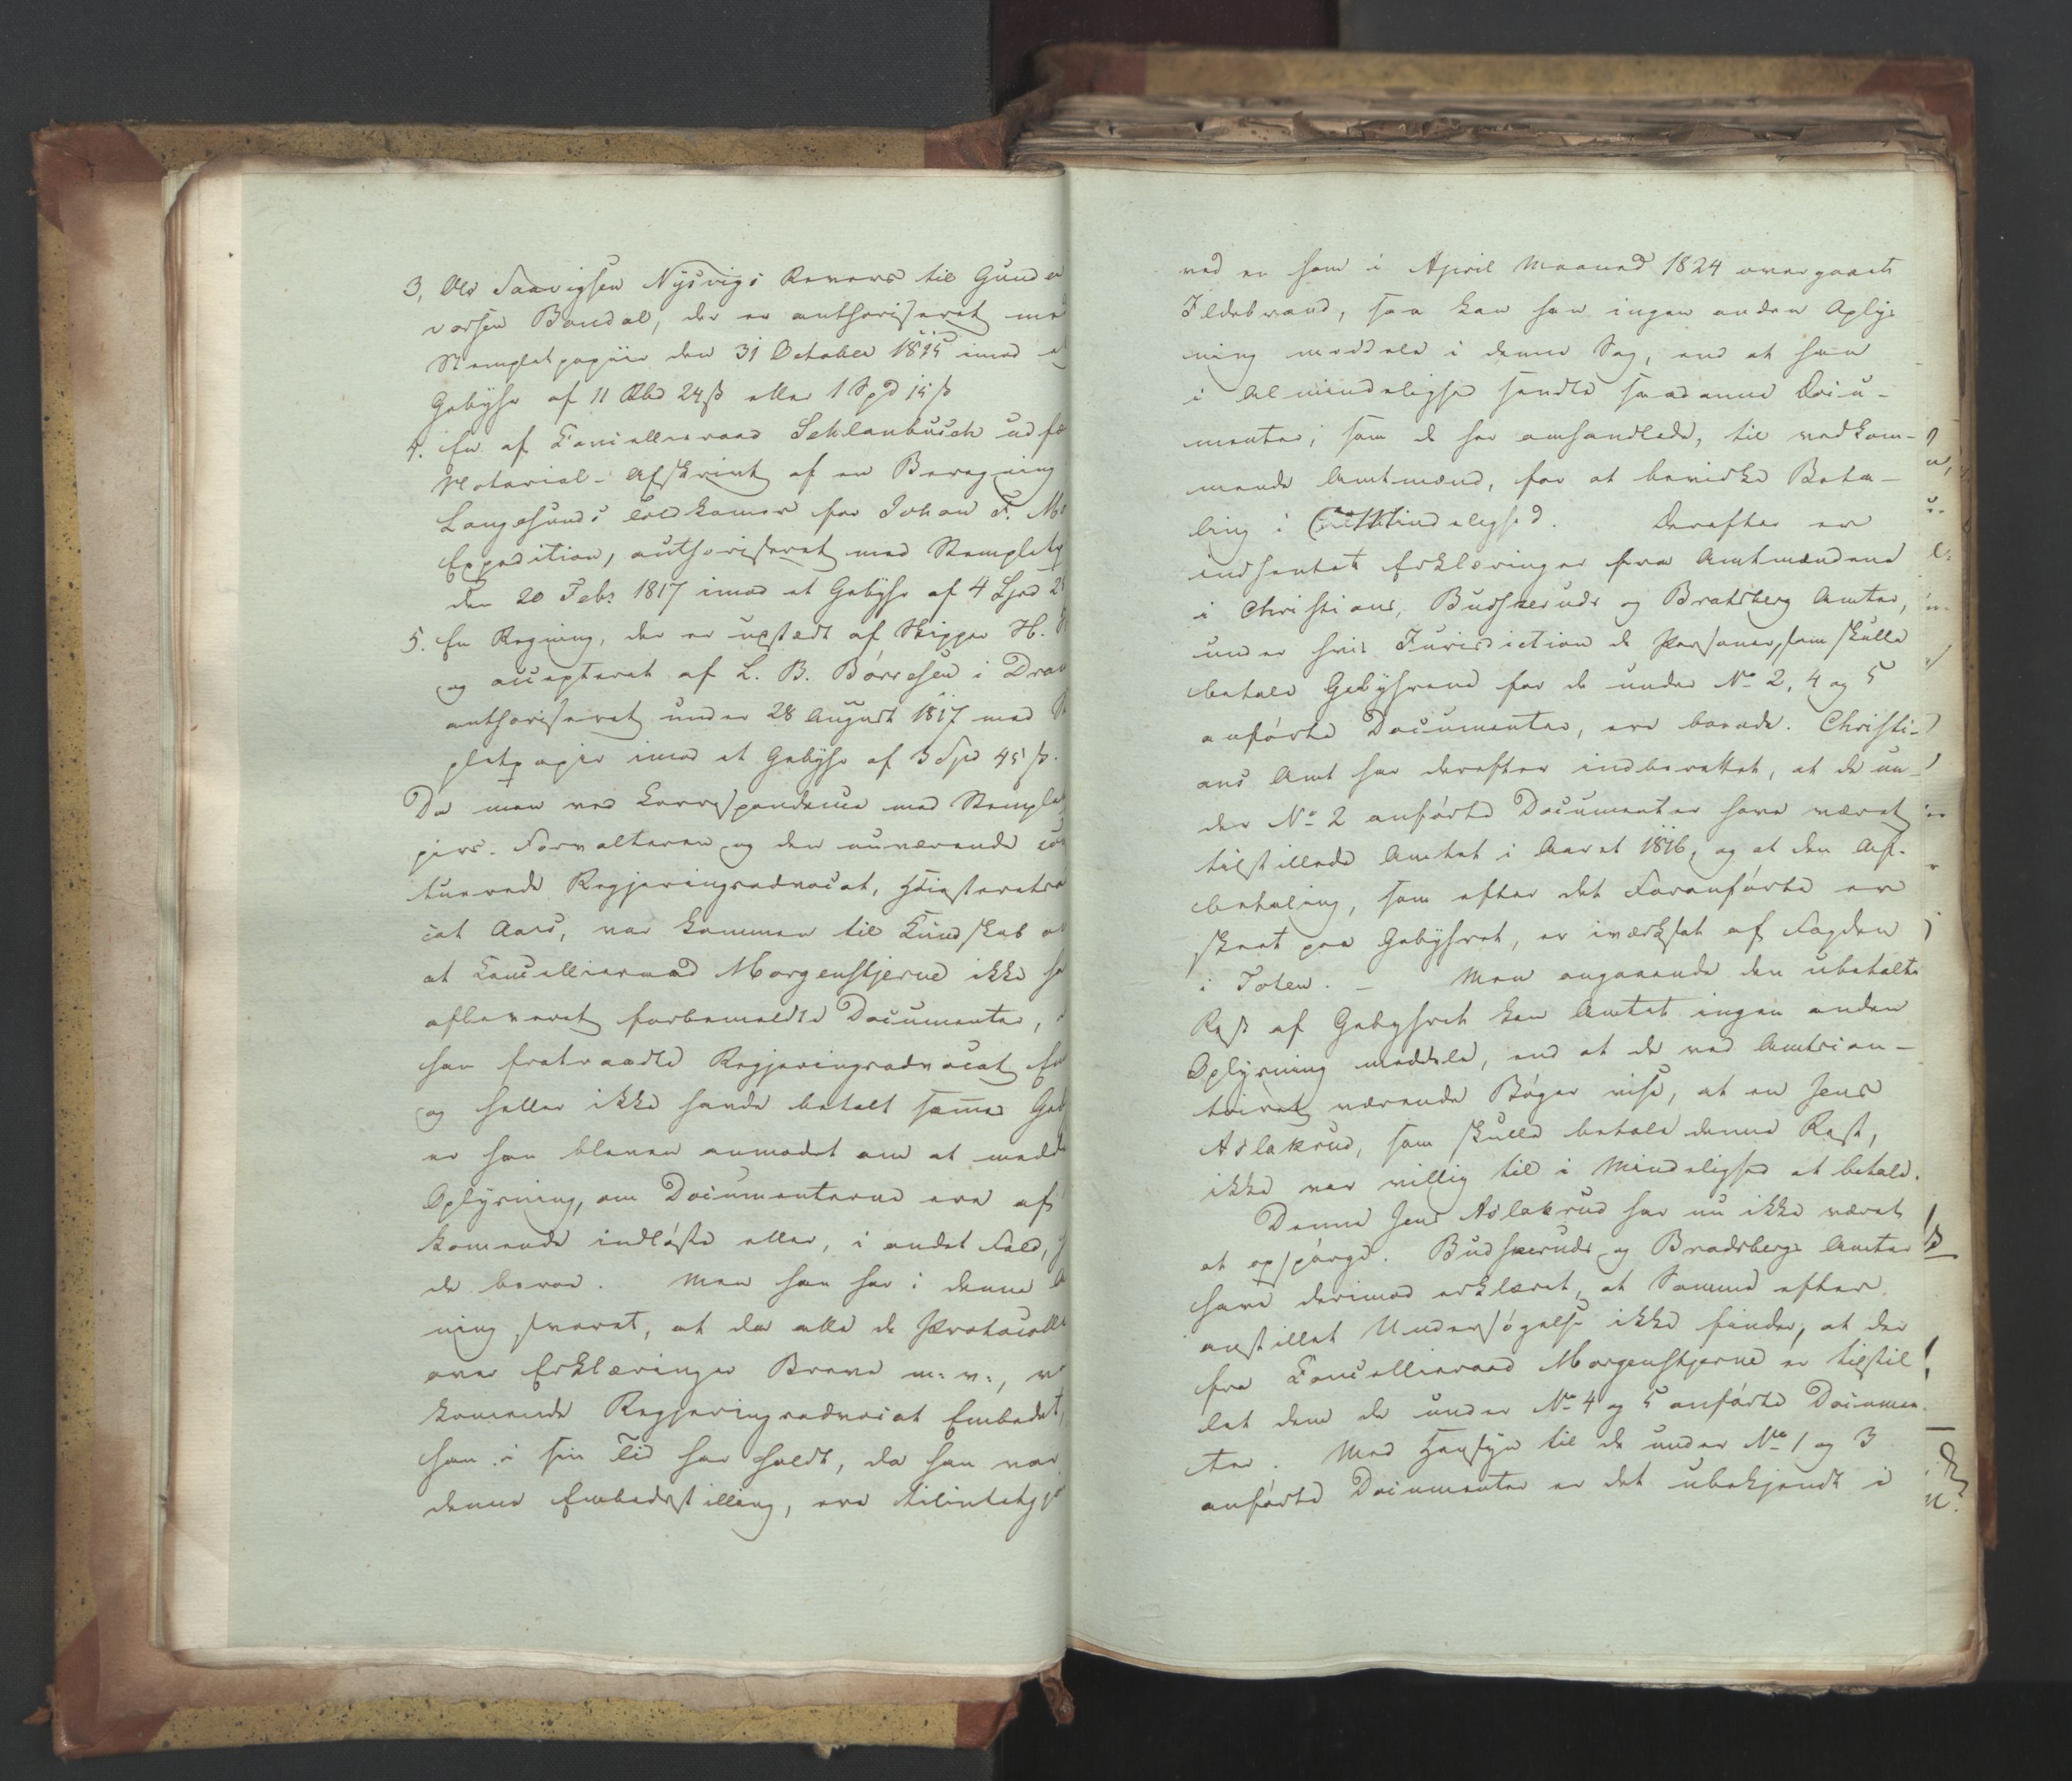 3, Ole Taarigsen Nysvigs Revers til Gunder
vorsen Bondal, der er authoriseret med
Stempletpapiir den 31 October 1815 imod et
Gebyhr af 11 Rbd 24 ß eller 1 Spd 15 ß
4. En af Cancellieraad Schlanbusch udfæ
Notarial-Afskrivt af en Beregning
Langesunds Toldkamer for Johan F.
Expedition, authoriseret med Stemplet
den 20 Febr 1817 imod et Gebyhr af 4 Spd
5. En Regning, der er udstædt af Skipper H.
og accepteret af L. B. Börresen i Dra
authoriseret under 28 August 1817 med
pletpapir imod et Gebyhr af 3 Spd 45 ß.
Da man ved Correspondence med Stemple
pirs-Forvalteren og den nuværende con
tuerede Regjeringsadvocat, Höiesteretsa
cat Aars, var kommen til Kundskab om
at Cancellieraad Morgenstjerne ikke ha
afleveret forbemeldte Documenter,
han fratraadte Regjeringsadvocat Em
og heller ikke havde betalt samme Geb
er han bleven anmodet om at medde
Oplysning, om Documenterne ere af
kommende indlöste eller, i andet Fald,
de beroe. Men han har i denne A
ning svaret, at da alle de Protocolle
over Erklæringer Breve m: v:, v
kommende Regjeringsadvocat Embedet,
han i sin Tid har holdt, da han var
denne Embedsstilling, ere tilintetgjo
ved en ham i April Maaned 1824 overgaaet
Ildebrand, saa kan han ingen anden Oplys
ning meddele i denne Sag, end at han
i Almindelighed sendte saadanne Docu-
menter, som de her omhandlede, til vedkom-
mende Amtmænd, for at bevirke Beta-
ling i Mindelighed. Derefter er
indhentet Erklæringer fra Amtmændene
i Christians, Budskeruds og Bratsberg Amter,
under hvis Jurisdiction de Personer, som skulle
betale Gebyhrene for de under No 2, 4 og 5
anförte Documenter, ere boende. Christi-
ans Amt har derefter indberettet, at de un-
der No 2 anförte Documenter have været
tilstillede Amtet i Aaret 1816, og at den Af-
betaling, som efter det Foranförte er
skeet paa Gebyhret, er iværksat af Fogden
i Toten. – Men angaaende den ubetalte
Rest af Gebyhret kan Amtet ingen anden
Oplysning meddele, end at de ved Amtscon-
toiret værende Böger vise, at en Jens
Aslakrud, som skulle betale denne Rest,
ikke var villig til i Mindelighed at betale.
Denne Jens Aslakrud har nu ikke været
at opspörge. Budskeruds og Bradsbergs Amter
have derimod erklæret, at Samme efter
anstillet Undersögelse ikke finder, at der
fra Cancellieraad Morgenstjerne er tilstil
let dem de under No 4 og 5 anförte Documen-
ter. Med Hensyn til de under No 1 og 3
anförte Documenter er det ubekjendt i